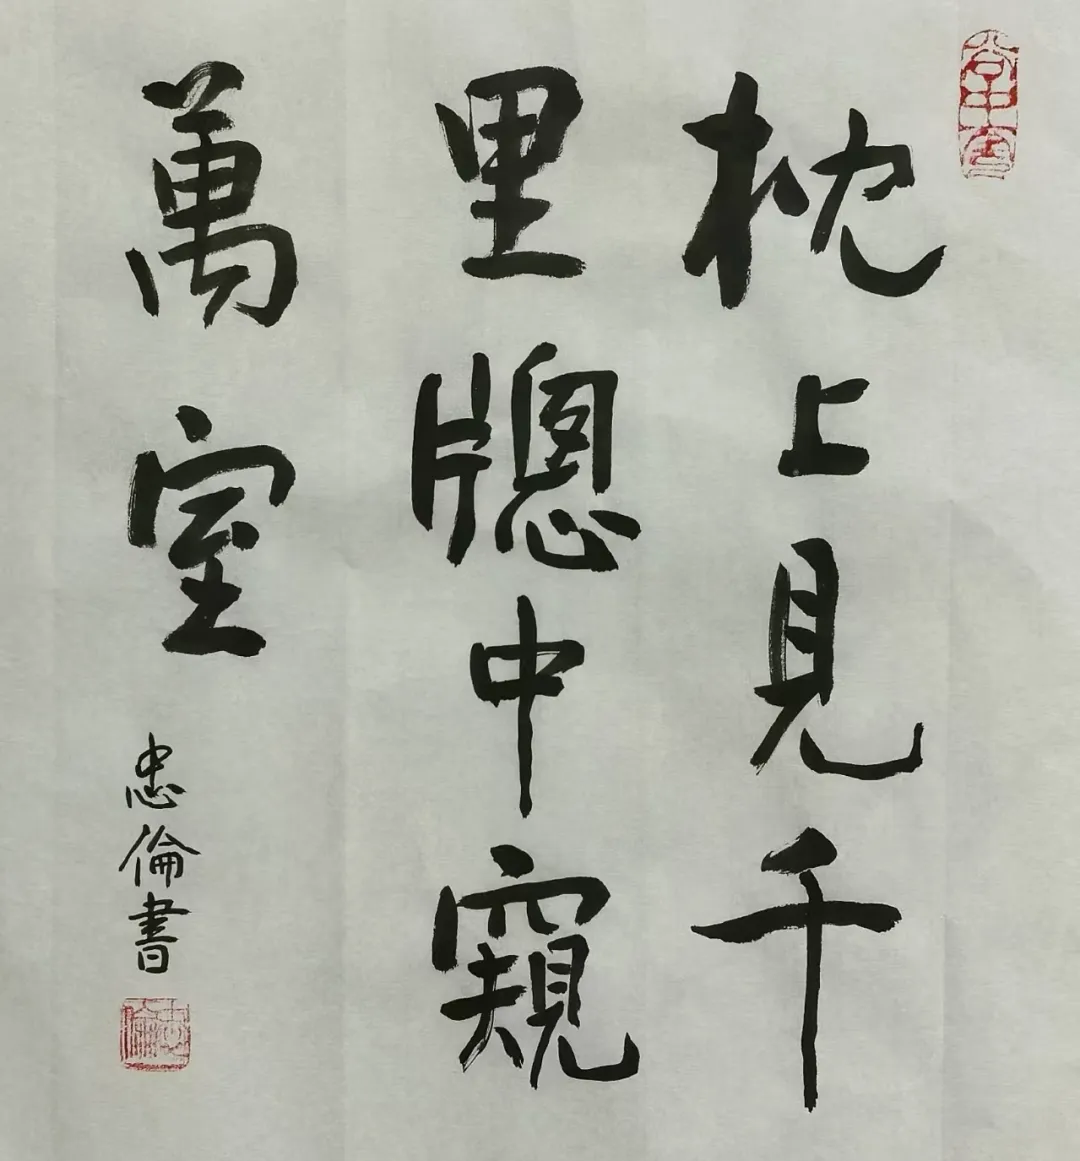 枕上見千
里牕中窺
萬室
忠倫書
忠倫